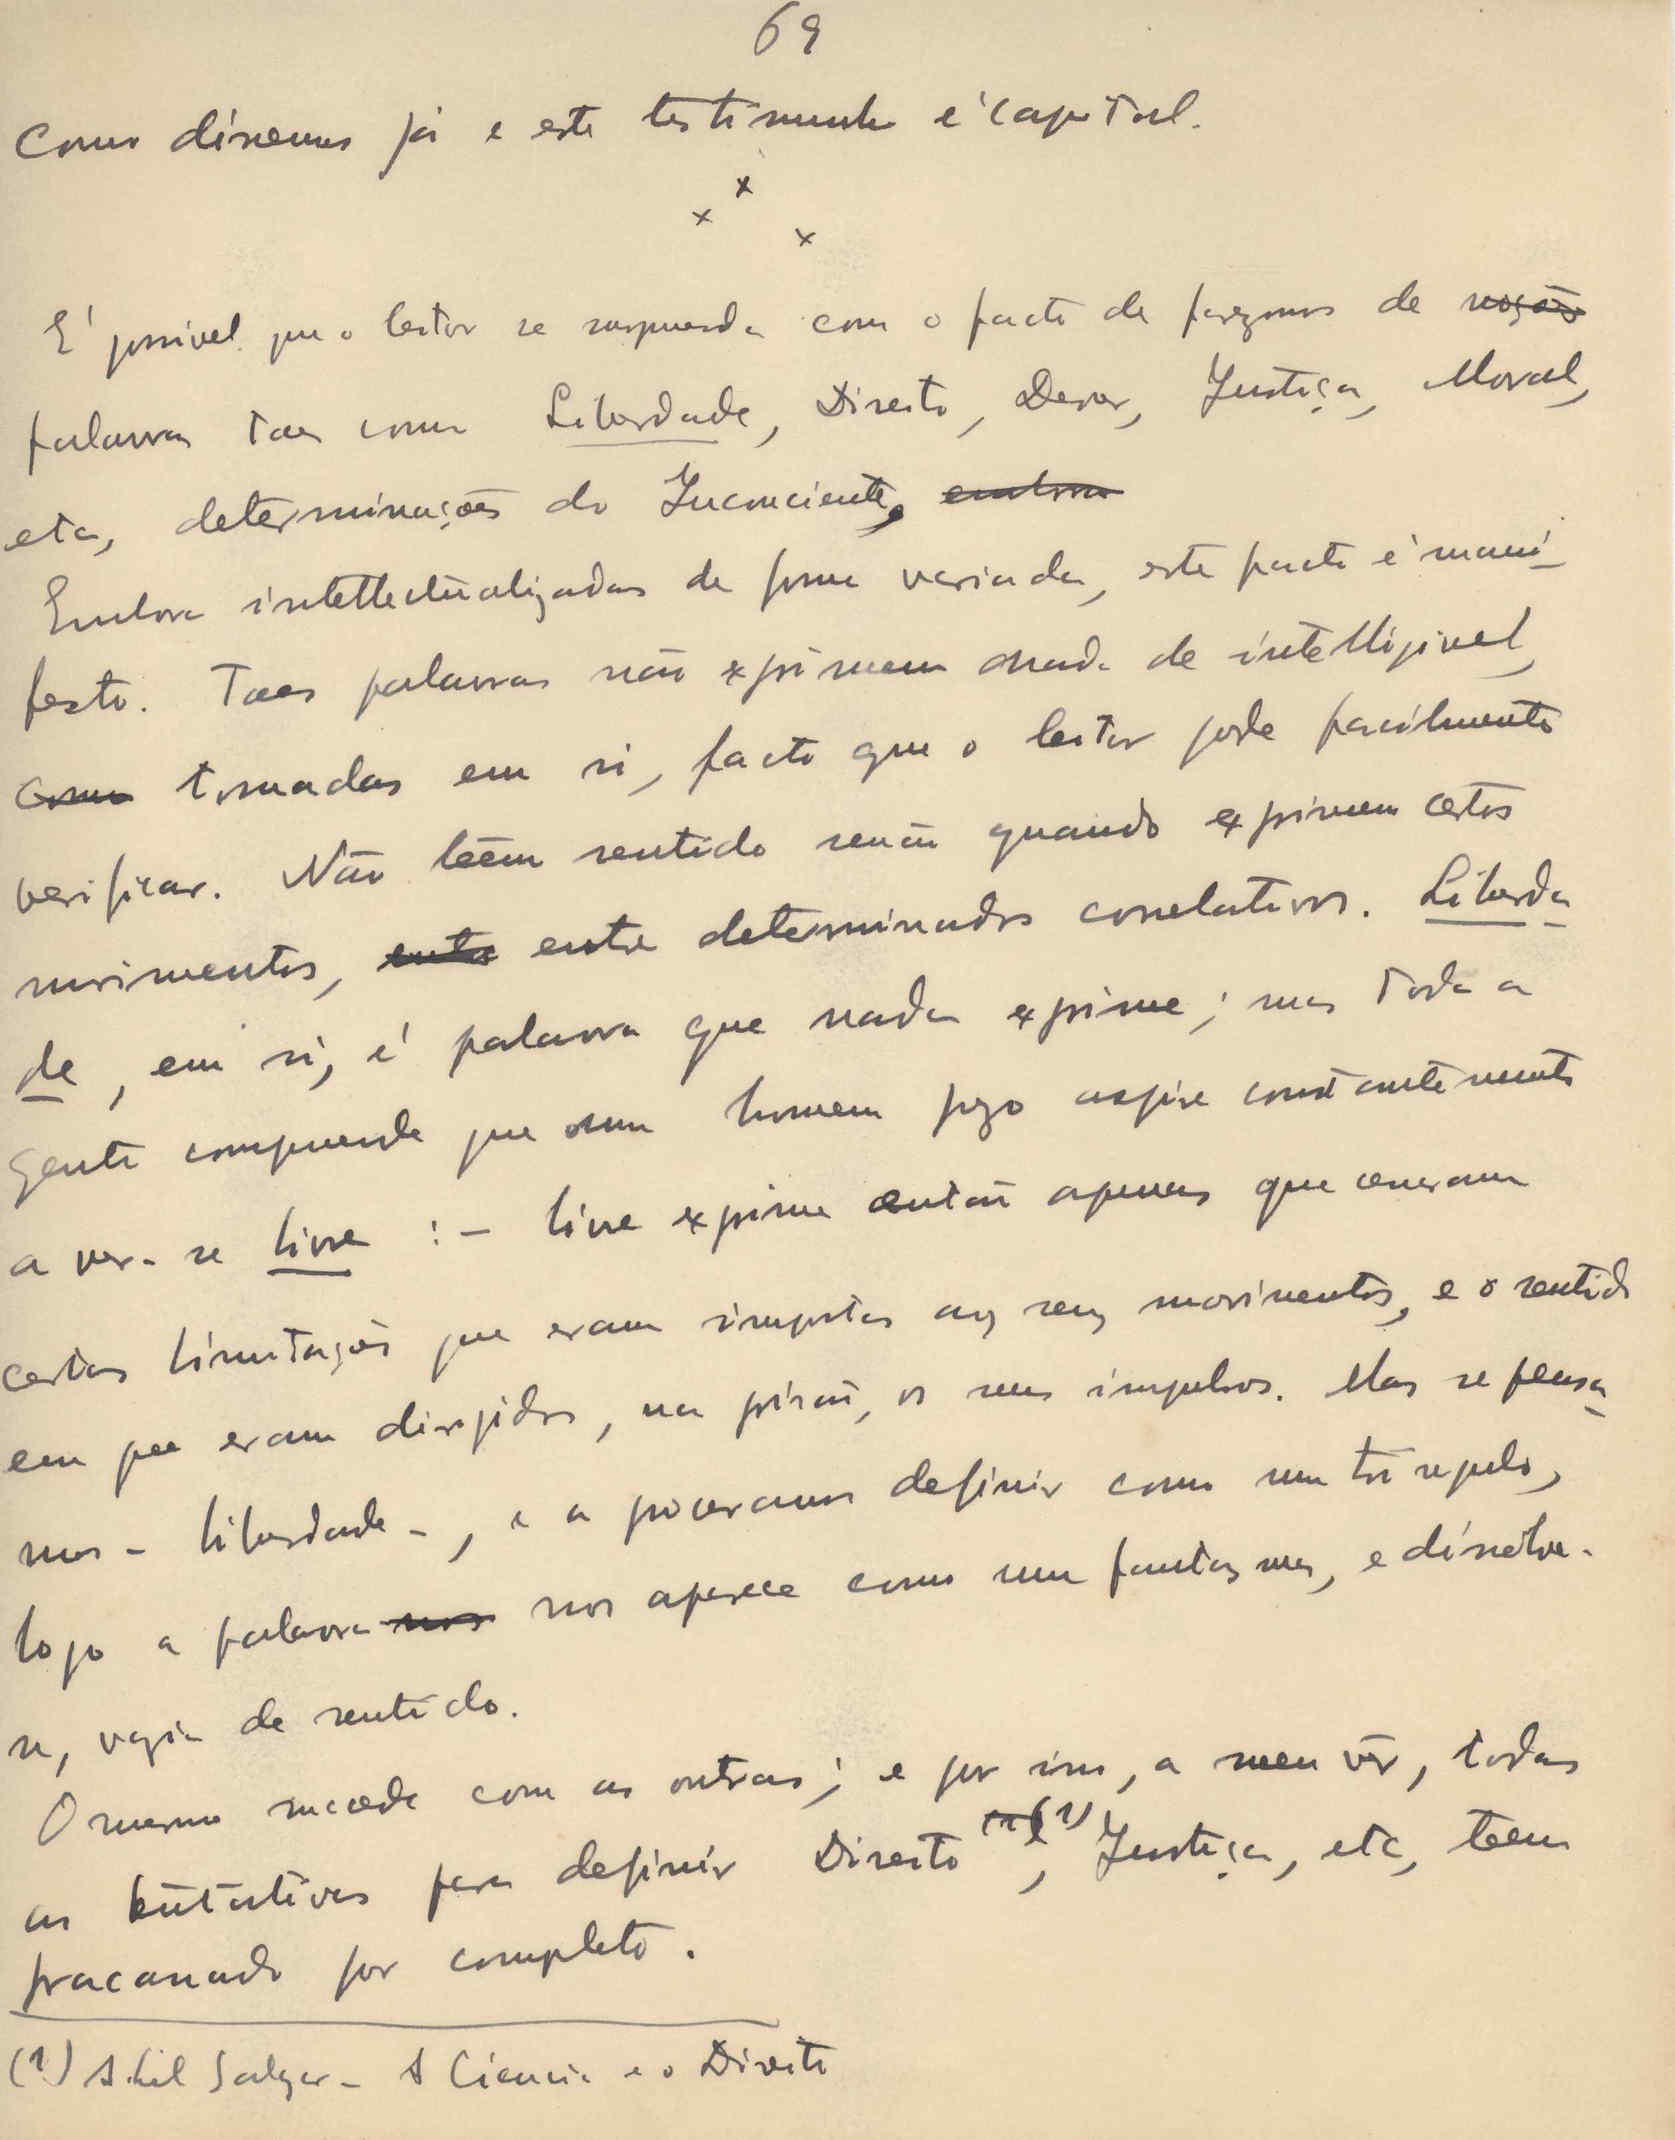 69
Como dissemos já e este testimunho é capital.
x
x x
E' possivel que o leitor se surpreenda com o facto de fazermos de noções
palavras taes como Liberdade, Direito, Dever, Justiça, Moral,
etc, determinações do Inconciente, embora
Embora intellectualizadas de forma variada, este facto é mani-
festo. Taes palavras não exprimem nada de intelligivel,
como tomadas em si, facto que o leitor pode facilmente
verificar. Não teem sentido senão quando exprimem certos
movimentos, entre entre determinados correlativos. Liberda-
de, em si, é palavra que nada exprime; mas toda a
gente comprehende que um homem preso aspire constantemente
a ver-se livre :- livre exprime então apenas que cessaram
certas limitações que eram impostas aos seus movimentos, e o sentido
em que eram dirigidos, na prisão, os seus impulsos. Mas se pensa-
mos - liberdade -, e a procuramos definir como um
logo a palavra nos nos aparece como um fantasma, e dissolve-
se, vazia de sentido.
O mesmo succede com as outras; e por isso, a meu vêr, todas
as tentativas para definir Direito (1) (1), Justiça, etc, teem
fracassado por completo.
(1) A. Gil Salgar - A Ciencia e o Direito